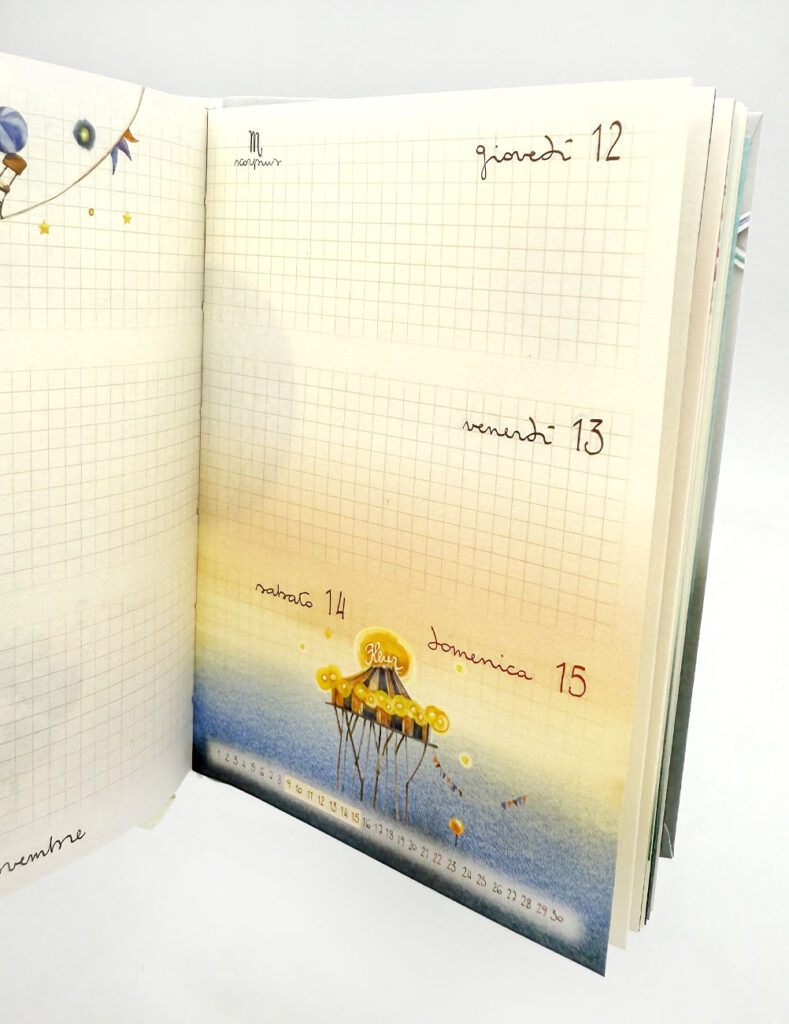 ovembre
♏
scorpius
giovedì 12
venerdì 13
sabato 14
domenica 15
Fleur
1 2 3 4 5 6 7 8 9 10 11 12 13 14 15 16 17 18 19 20 21 22 23 24 25 26 27 28 29 30